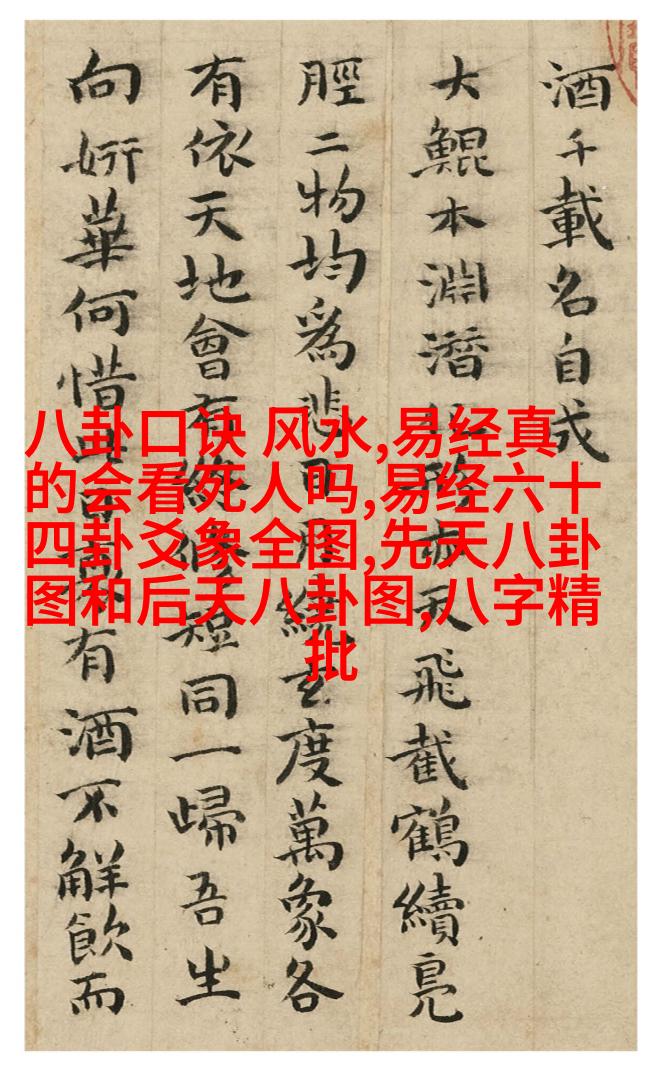 酒千載名自成
大鯤本淵潛亦天飛截鶴續鳧
脛二物均爲悲日月繞玄度萬象各
有依天地會有終脩短同一歸吾生
向妍華何惜此日有酒不解飲而
八卦口诀 风水,易经真
的会看死人吗,易经六十
四卦爻象全图,先天八卦
图和后天八卦图,八字精
批